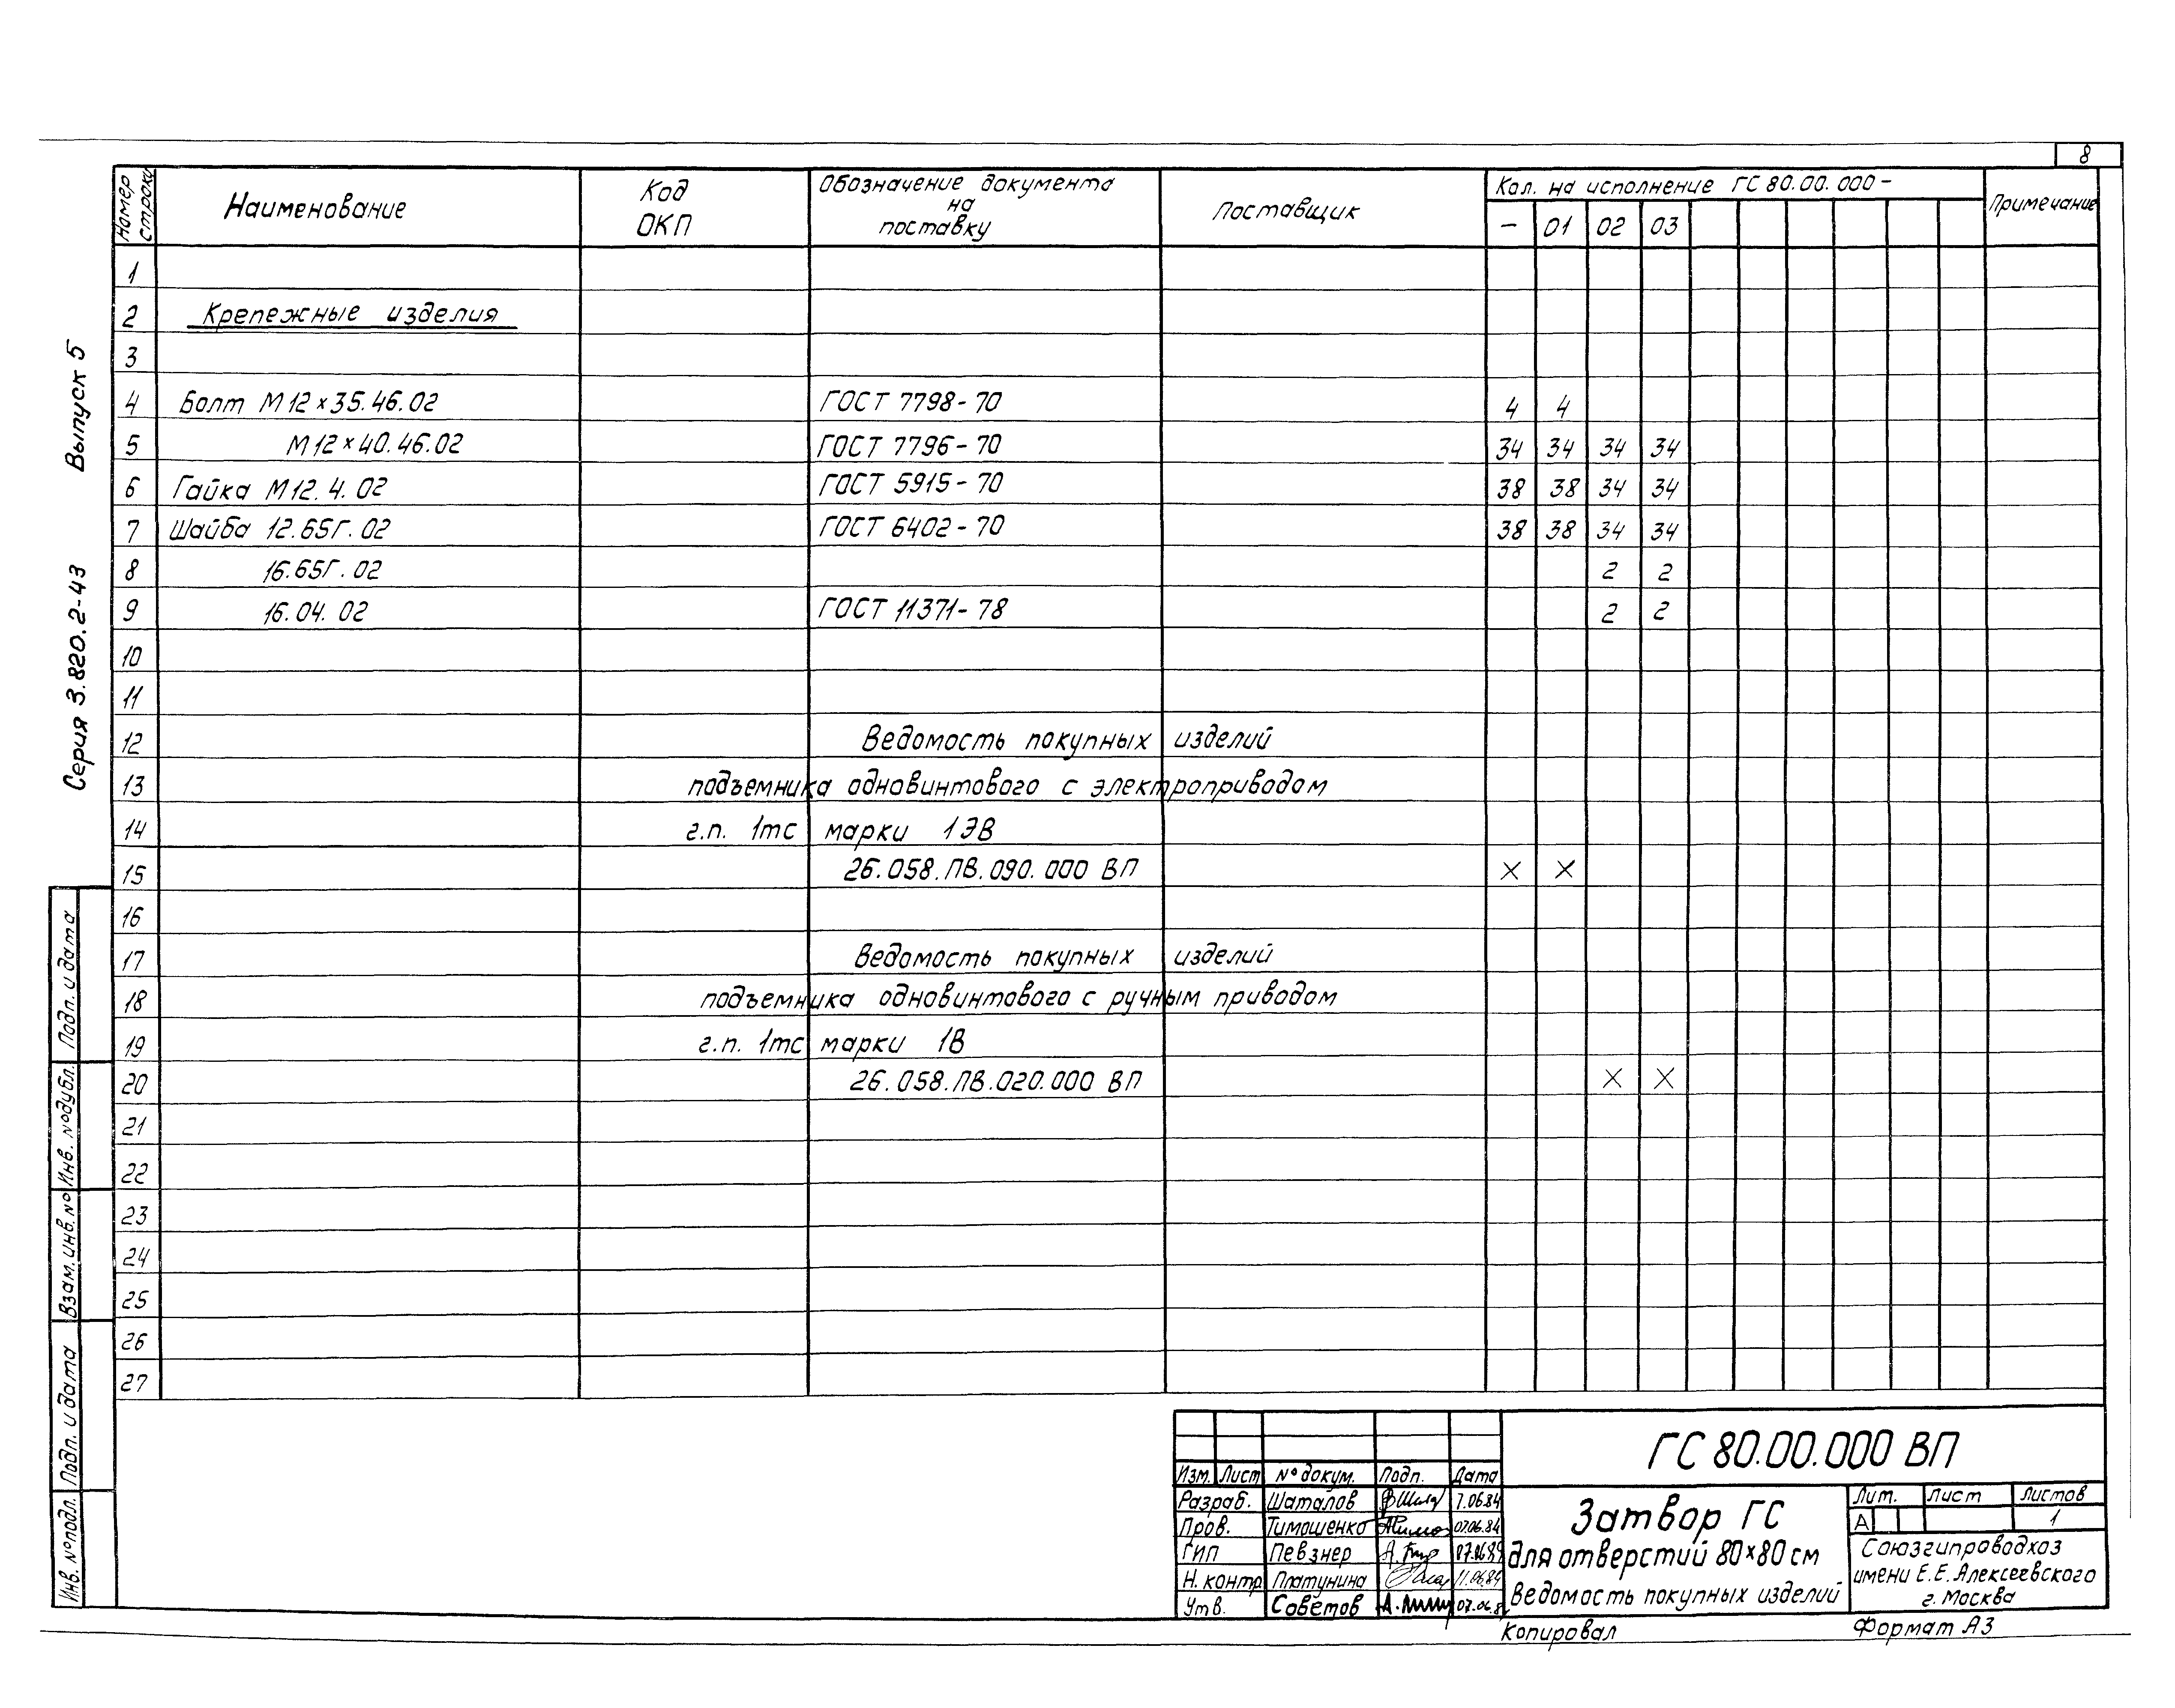 8
Номер строки
Наименование
Код ОКП
Обозначение документа на поставку
Поставщик
Кол. на исполнение ГС 80.00.000 -
- 01 02 03
Примечание
1
2 Крепежные изделия
3
4 Болт М12×35.46.02 ГОСТ 7798-70 4 4
5 М12×40.46.02 ГОСТ 7796-70 34 34 34 34
6 Гайка М12.4.02 ГОСТ 5915-70 38 38 34 34
7 Шайба 12.65Г.02 ГОСТ 6402-70 38 38 34 34
8 16.65Г.02 2 2
9 16.04.02 ГОСТ 11371-78 2 2
10
11
12 Ведомость покупных изделий
13 подъемника одновинтового с электроприводом
14 г.п. 1тс марки 1ЭВ
15 26.058.ПВ.090.000 ВП × ×
16
17 Ведомость покупных изделий
18 подъемника одновинтового с ручным приводом
19 г.п. 1тс марки 1В
20 26.058.ПВ.020.000 ВП × ×
21
22
23
24
25
26
27
Серия 3.820.2-43 Выпуск 5
Подп. и дата
Инв. № дубл.
Взам. инв. №
Подп. и дата
Инв. № подл.
Изм. Лист № докум. Подп. Дата
Разраб. Шаталов 7.06.84
Пров. Тимошенко 07.06.84
ГИП Певзнер 07.06.84
Н. контр Платунина 11.06.84
Утв. Советов 07.06.8
ГС 80.00.000 ВП
Затвор ГС
для отверстий 80×80 см
Ведомость покупных изделий
Лит. Лист Листов
А 1
Союзгипроводхоз
имени Е.Е. Алексеевского
г. Москва
Копировал Формат А3